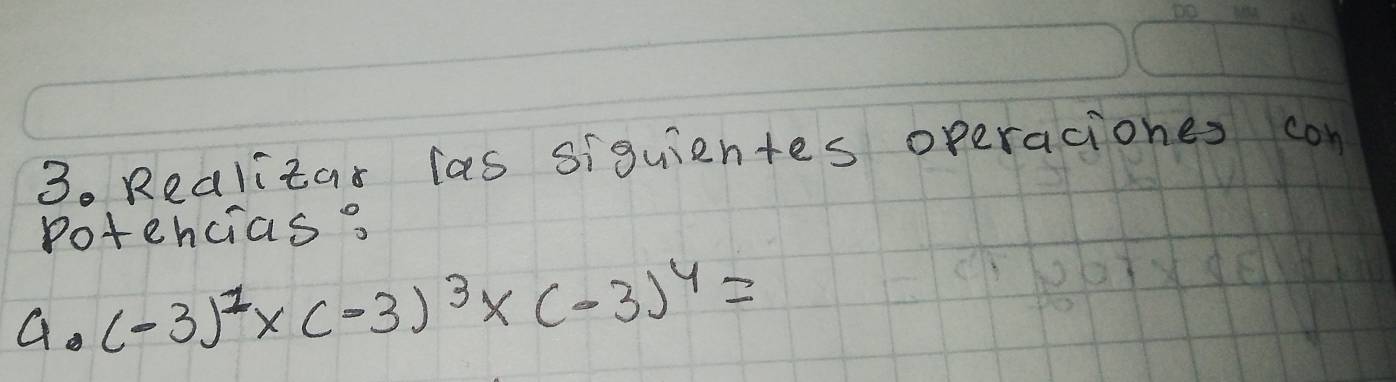 3. Realizar las siguientes operaciones con
potencias:
a. (-3)¹x(-3)³x(-3)⁴=